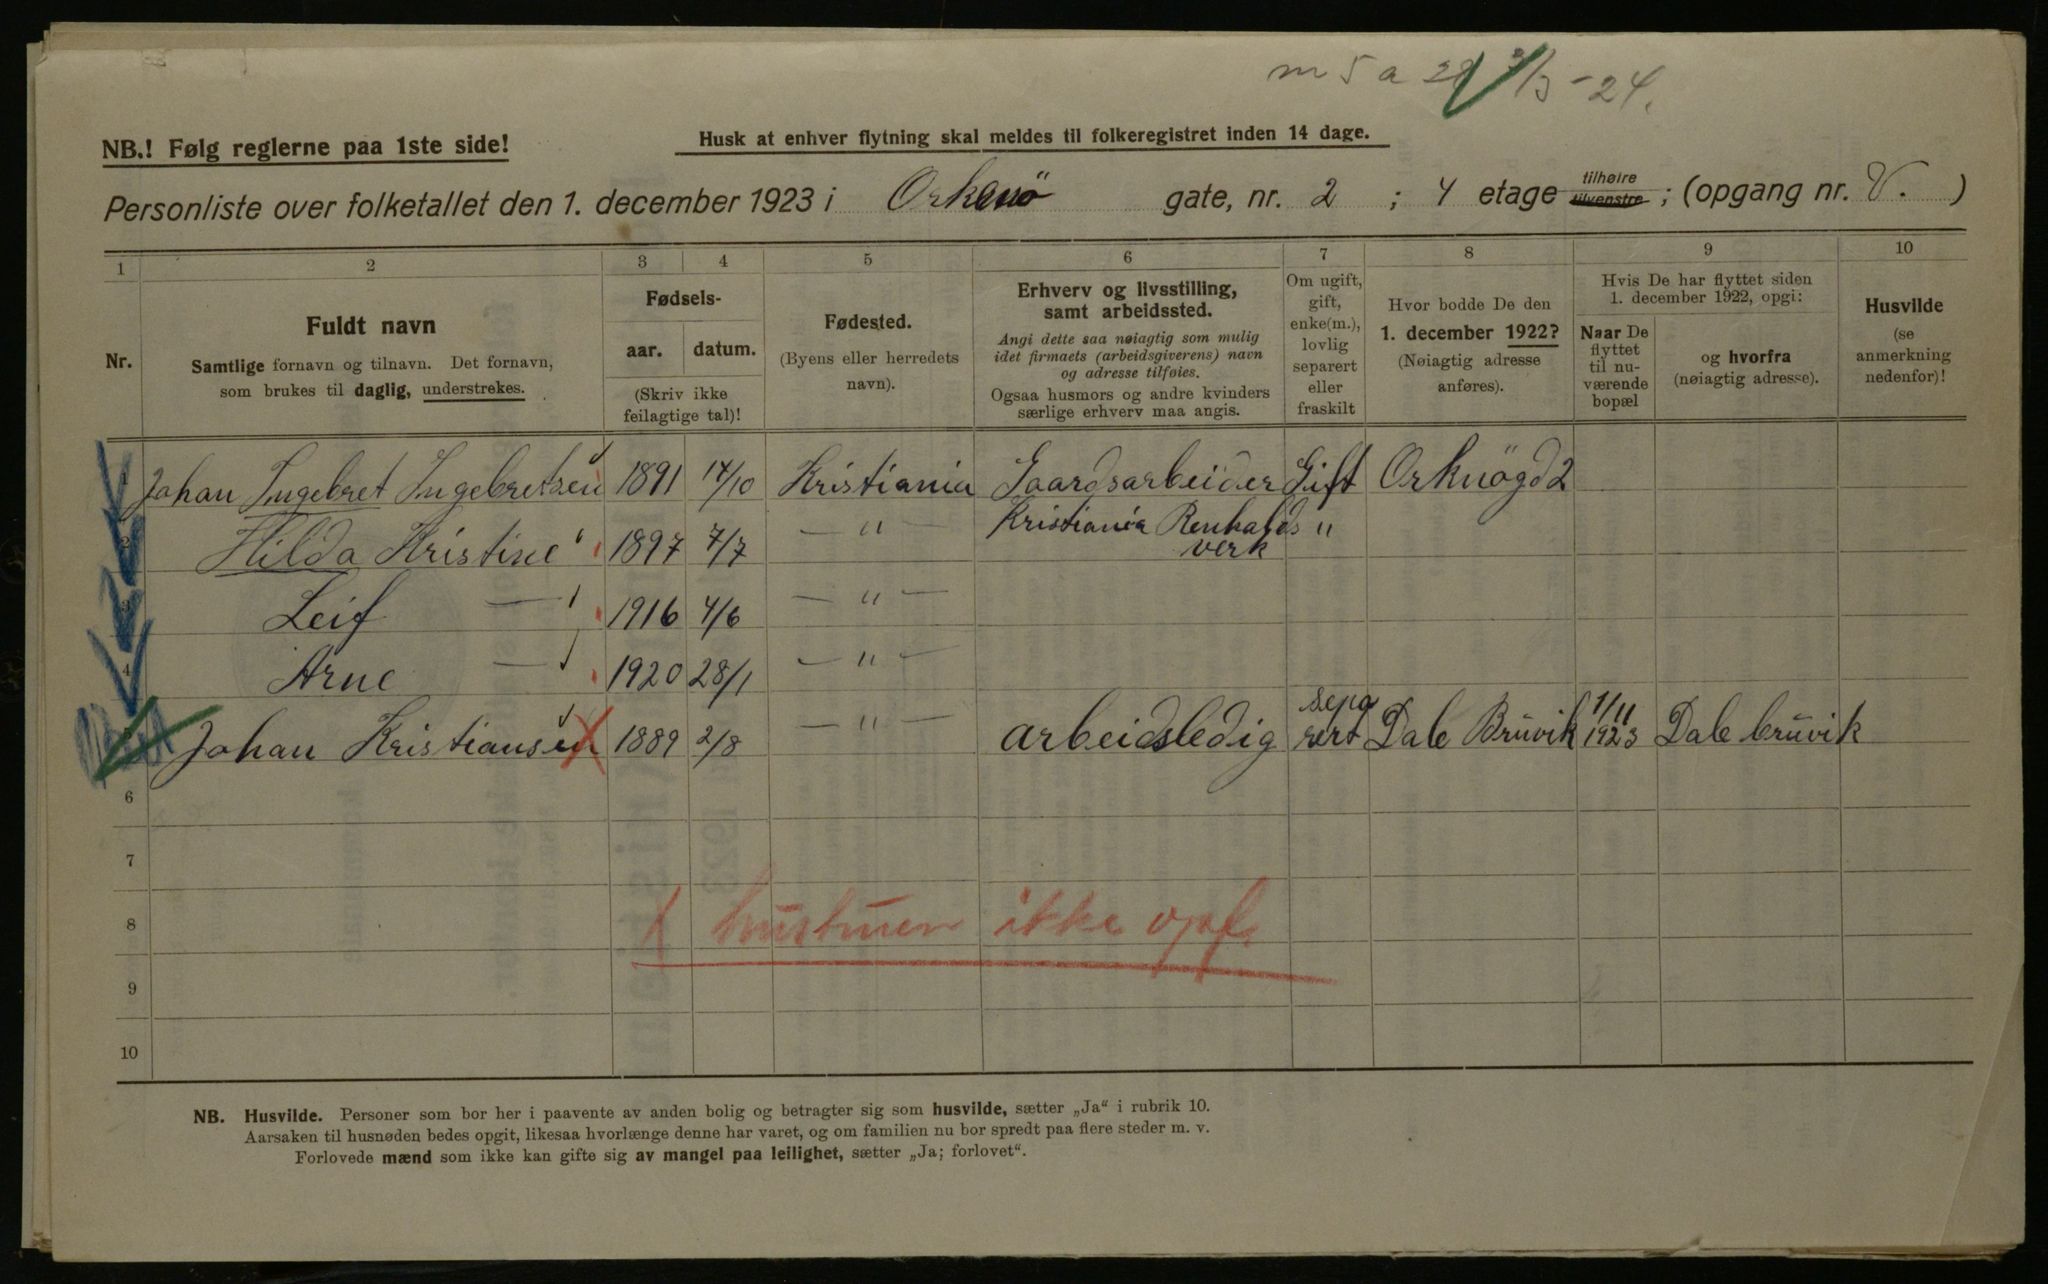 m 5 a 29 3/3 - 24.
NB.! Følg reglerne paa 1ste side!
Husk at enhver flytning skal meldes til folkeregistret inden 14 dage.
Personliste over folketallet den 1. december 1923 i Orkenö gate, nr. 2 ; 4 etage tilhøire tilvenstre ; (opgang nr. V. )
1 2 3 4 5 6 7 8 9 10
Nr.
Fuldt navn
Samtlige fornavn og tilnavn. Det fornavn,
som brukes til daglig, understrekes.
Fødsels-
aar. datum.
(Skriv ikke
feilagtige tal)!
Fødested.
(Byens eller herredets
navn).
Erhverv og livsstilling,
samt arbeidssted.
Angi dette saa nøiagtig som mulig
idet firmaets (arbeidsgiverens) navn
og adresse tilføies.
Ogsaa husmors og andre kvinders
særlige erhverv maa angis.
Om ugift,
gift,
enke(m.),
lovlig
separert
eller
fraskilt
Hvor bodde De den
1. december 1922?
(Nøiagtig adresse
anføres).
Hvis De har flyttet siden
1. december 1922, opgi:
Naar De
flyttet
til nu-
værende
bopæl
og hvorfra
(nøiagtig adresse).
Husvilde
(se
anmerkning
nedenfor)!
1 Johan Ingebret Ingebretsen 1891 17/10 Kristiania Gaardsarbeider Gift Orknögd 2
2 Hilda Kristine " 1897 7/7 — " — Kristiania Renholds "
verk
3 Leif — " 1916 4/6 — " —
4 Arne — " 1920 28/1 — " —
5 Johan Kristiansen X 1889 2/8 — " — arbeidsledig sepa
rert Dale Brŭvik 1/11
1923 Dale brŭvik
6
7
8 X hŭstrŭen ikke opf.
9
10
NB. Husvilde. Personer som bor her i paavente av anden bolig og betragter sig som husvilde, sætter „Ja“ i rubrik 10.
Aarsaken til husnøden bedes opgit, likesaa hvorlænge denne har varet, og om familien nu bor spredt paa flere steder m. v.
Forlovede mænd som ikke kan gifte sig av mangel paa leilighet, sætter „Ja; forlovet“.